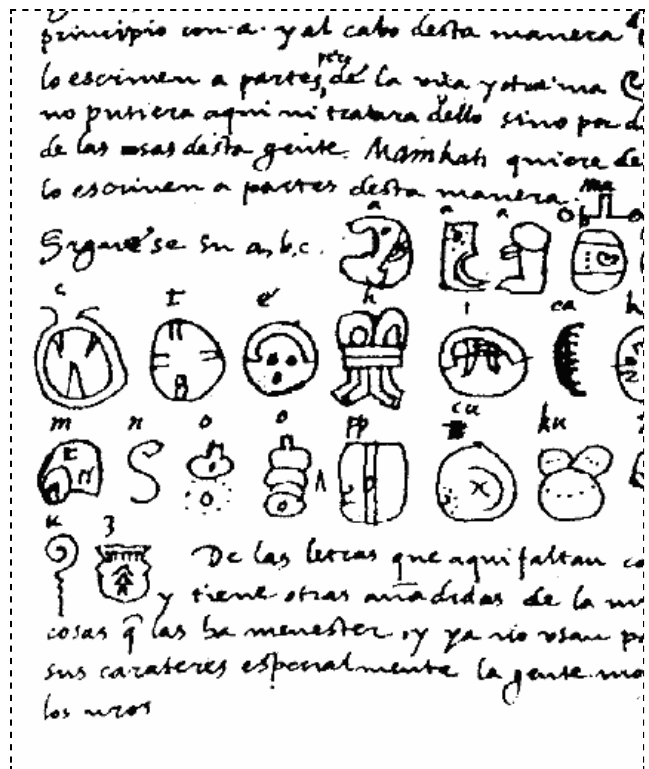 principio con .a. y al cabo desta manera
lo escriven a partes, de la una y otra ma
pero
no pusiera aqui ni tratara dello sino por d
de las cosas desta gente. Mainkati quiere de
lo escriven a partes desta manera. ma
Siguese su a, b, c. a a a b
c t e h i ca k
m n o o pp cu ku
u z De las letras que aqui faltan ca
y tiene otras añadidas de la
cosas q̃ las ha menester, y ya no usan p
sus carateres especialmente la gente mo
los nros